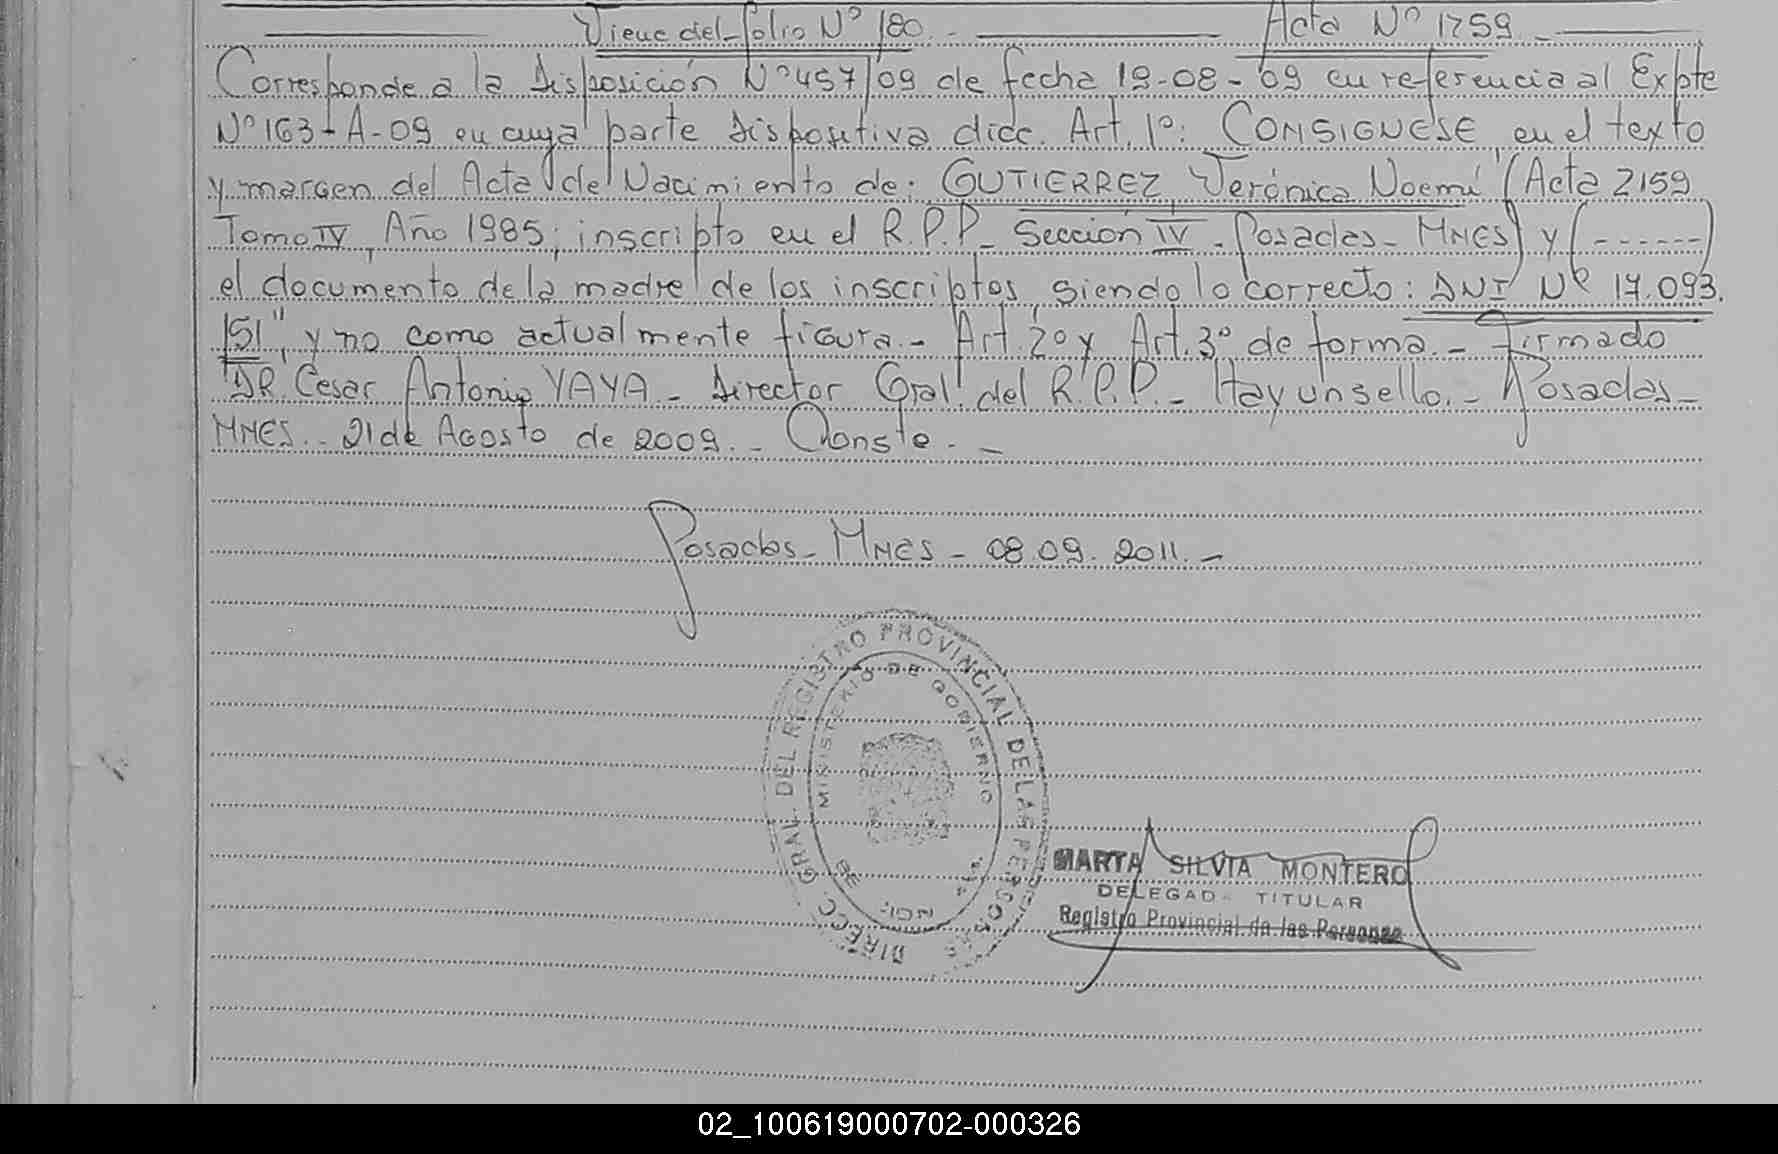 Viene del folio Nº 180.- Acta Nº 1759.-
Corresponde a la Disposición Nº 457/09 de fecha 19-08-09 en referencia al Expte
Nº 163-A-09 en cuya parte dispositiva dice. Art. 1º: CONSIGNESE en el texto
y margen del Acta de Nacimiento de: GUTIERREZ, Verónica Noemí (Acta 2159
Tomo IV, Año 1985, inscripto en el R.P.P- Sección IV - Posadas- MNES) y (------)
el documento de la madre de los inscriptos, siendo lo correcto: DNI Nº 17.093.
151", y no como actualmente figura.- Art. 2º y Art. 3º de forma.- Firmado
DR. Cesar Antonio YAYA - Director Gral. del R.P.P.- Hay un sello.- Posadas-
MNES.- 21 de Agosto de 2009.- Conste.-
Posadas- MNES- 08.09.2011.-
DIRECC. GRAL. DEL REGISTRO PROVINCIAL DE LAS PERSONAS
MINISTERIO DE GOBIERNO
MARTA SILVIA MONTERO
DELEGADA TITULAR
Registro Provincial de las Personas
02_100619000702-000326